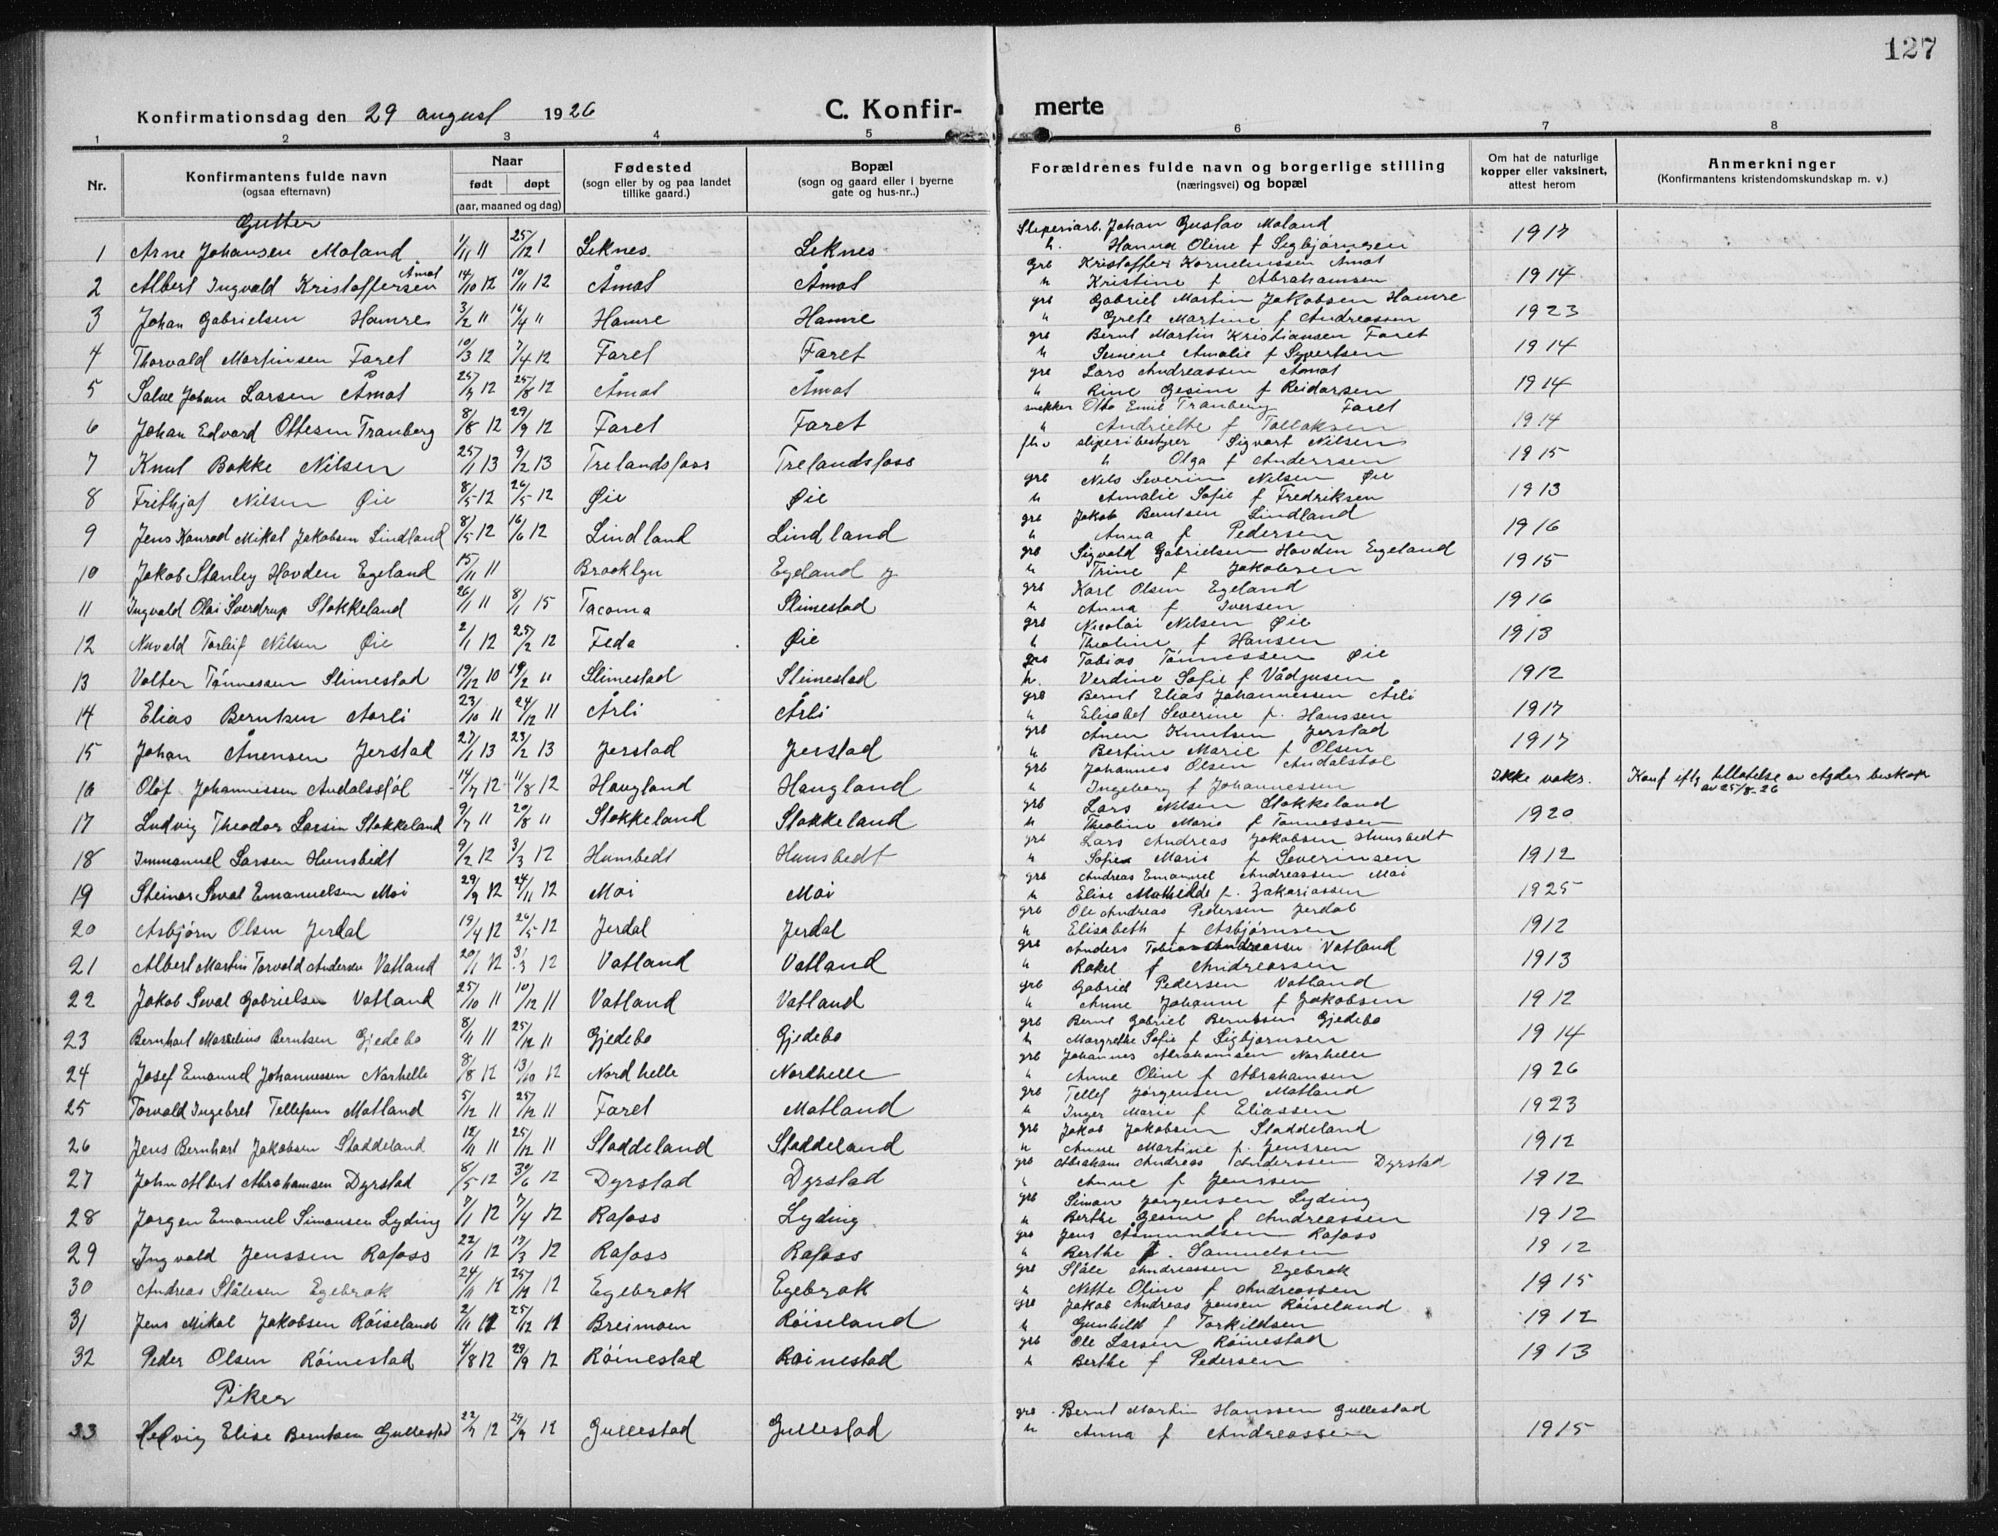 127
Konfirmationsdag den 29 august 1926 C. Konfir- merte
1 2 3 4 5 6 7 8
Nr. Konfirmantens fulde navn (ogsaa efternavn) Naar født døpt (aar, maaned og dag) Fødested (sogn eller by og paa landet tillike gaard.) Bopæl (sogn og gaard eller i byerne gate og hus-nr..) Forældrenes fulde navn og borgerlige stilling (næringsvei) og bopæl Om hat de naturlige kopper eller vaksinert, attest herom Anmerkninger (Konfirmantens kristendomskundskap m. v.)
Gutter
1 Arne Johansen Moland 1/11 11 25/12 1 Leknes Leknes Sliperiarb. Johan Gustav Moland 1917
h. Hanna Oline f Sigbjørnsen
2 Albert Ingvald Kristoffersen Åmot 14/10 12 10/11 12 Åmot Åmot Grb Kristoffer Kornelinssen Åmot 1914
h Kristine f Abrahamsen
3 Johan Gabrielsen Hamre 3/2 11 16/4 11 Hamre Hamre grb Gabriel Martin Jakobsen Hamre 1923
h Grete Martine f Andreassen
4 Thorvald Martinsen Faret 10/3 12 7/4 12 Faret Faret grb Bernt Martin Kristiansen Faret 1914
h Amalie f Syvertsen
5 Salve Johan Larsen Åmot 25/7 12 25/8 12 Åmot Åmot gre Lars Andreassen Åmot 1914
h Rine Gesine f Reidarsen
6 Johan Edvard Ottesen Tranberg 8/8 12 29/9 12 Faret Faret snekker Otto Emil Tranberg Faret 1914
h Andriette f Tollaksen
7 Knut Bakke Nilsen 25/1 13 9/2 13 Trelandsfoss Trelandsfoss fhv sliperibestyrer Sigvart Nilsen 1915
h Olga f Anderrsen
8 Frithjof Nilsen Øie 8/5 12 26/5 12 Øie Øie grb Nils Severin Nilsen Øie 1913
h Amalie Sofie f Fredriksen
9 Jens Konrad Mikal Jakobsen Lindland 8/5 12 16/6 12 Lindland Lindland grb Jakob Berntsen Lindland 1916
h Anna f Pedersen
10 Jakob Stanley Hovden Egeland 15/11 11 Brooklyn Egeland y grb Sigvald Gabrielsen Hovden Egeland 1915
h Trine f Jakobsen
11 Ingvald Olai Sverdrup Stokkeland 26/1 11 8/1 15 Tacoma Slimestad grb Karl Olsen Egeland 1916
h Anna f Iversen
12 Nuvald Torleif Nilsen Øie 2/1 12 25/2 12 Feda Øie grb Nicolai Nilsen Øie 1913
h Theoline f Hansen
13 Volter Tønnessen Slimestad 19/12 10 19/2 11 Slimestad Slimestad grb Tobias Tønnessen Øie 1912
h. Verdine Sofie f Vådjusen
14 Elias Berntsen Aarli 23/10 11 24/12 11 Årli Årli grb Bernt Elias Johannessen Årli 1917
h Elisabet Severine f. Hanssen
15 Johan Ånensen Jerstad 27/1 13 23/2 13 Jerstad Jerstad grb Ånen Knutsen Jerstad 1917
h Bertine Marie f Olsen
16 Olof Johannessen Andalsstøl 14/7 12 11/8 12 Haugland Haugland grb Johannes Olsen Andalstøl Ikke vaks. Konf iflg tillatelse av Agder beskop av 25/8-26
h Ingeborg f Johannessen
17 Ludvig Theodor Larsen Stokkeland 9/7 11 20/8 11 Stokkeland Stokkeland grb Lars Nilsen Stokkeland 1920
h Theoline Marie f Tønnessen
18 Immanuel Larsen Hunsbedt 9/2 12 3/3 12 Hunsbedt Hunsbedt grb Lars Andreas Jakobsen Hunsbedt 1912
h Sofie Marie f Severinsen
19 Steinar Seval Emanuelsen Moi 29/9 12 24/11 12 Moi Moi grb Andreas Emanuel Andreassen Moi 1925
h Elise Mathilde f. Zakariassen
20 Asbjørn Olsen Jerdal 19/4 12 26/5 12 Jerdal Jerdal grb Ole Andreas Pedersen Jerdal 1912
h Elisabeth f Asbjørnsen
21 Albert Martin Torvald Andersen Vatland 20/1 12 31/3 12 Vatland Vatland grb Anders Tobias Andreassen Vatland 1913
h Rakel f Andreassen
22 Jakob Seval Gabrielsen Vatland 25/10 11 10/12 11 Vatland Vatland grb Gabriel Pedersen Vatland 1912
h Anne Johanne f Jakobsen
23 Bernhart Marselius Berntsen Gjedebo 8/11 11 25/12 11 Gjedebo Gjedebo grb Bernt Gabriel Berntsen Gjedebo 1914
h Margrethe Sofie f Sigbjørnsen
24 Josef Emanuel Johannessen Narhelle 8/8 12 13/10 12 Nordhelle Nordhelle grb Johannes Abrahamsen Narhelle 1926
h Anne Oline f Abrahamsen
25 Torvald Ingebret Tellefsen Matland 5/12 11 25/12 11 Faret Matland grb Tellef Jørgensen Matland 1923
h Inger Marie f Eliassen
26 Jens Bernhart Jakobsen Staddeland 12/11 11 25/12 11 Staddeland Staddeland grb Jakob Jakobsen Staddeland 1912
h Anne Martine f. Jenssen
27 John Albert Abrahamsen Dyrstad 8/5 12 30/6 12 Dyrstad Dyrstad grb Abraham Andreas Anderssen Dyrstad 1912
h Anne f Jenssen
28 Jørgen Emanuel Simonsen Lyding 7/1 12 7/4 12 Rafoss Lyding grb Simon Jørgensen Lyding 1912
h Berthe Gesine f Andreassen
29 Ingvald Jenssen Rafoss 22/1 12 17/3 12 Rafoss Rafoss grb Jens Åsmundsen Rafoss 1912
h Berthe f. Samuelsen
30 Andreas Stålesen Egebrok 24/11 12 25/12 12 Egebrok Egebrok grb Ståle Andreassen Egebrok 1915
h Nette Oline f Andreassen
31 Jens Mikal Jakobsen Røiseland 2/11 12 25/12 12 Breimoen Røiseland grb Jakob Andreas Jensen Røiseland 1912
h Gunhild f Torkildsen
32 Peder Olsen Røinestad 4/8 12 29/9 12 Røinestad Roinestad grb Ole Larsen Røinestad 1913
h Berthe f Pedersen
Piker
33 Helvig Elise Berntsen Gullestad 22/7 12 29/9 12 Gullestad Gullestad grb Bernt Martin Hanssen Gullestad 1915
h Anna f Andreassen